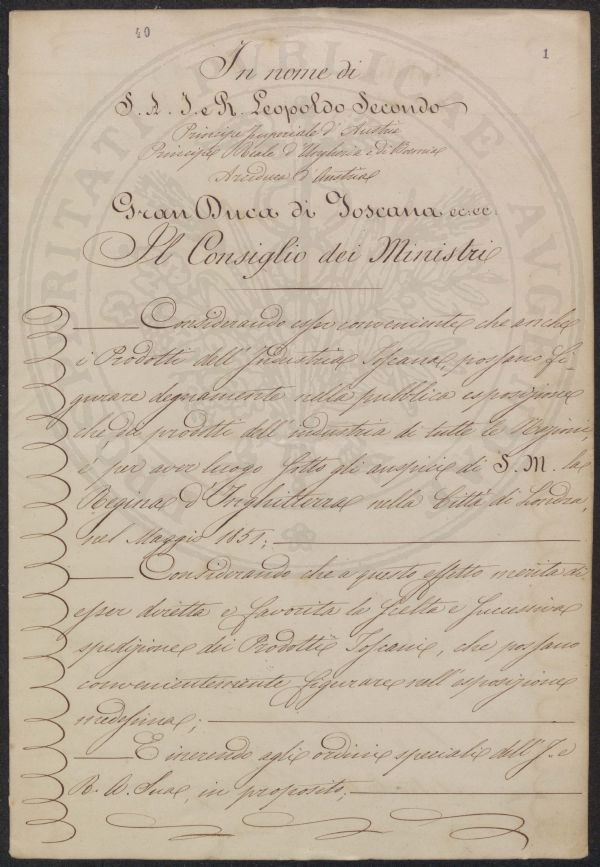 40
1
In nome di
S. A. I. e R. Leopoldo Secondo
Principe Imperiale d'Austria
Principe Reale d'Ungheria e di Boemia
Arciduca d'Austria
Gran Duca di Toscana ec. ec.
Il Consiglio dei Ministri
Considerando esser conveniente che anche
i Prodotti dell'Industria Toscana, possano fi-
gurare degnamente nella pubblica esposizione
che dei prodotti dell'industria di tutte le Nazioni,
é per aver luogo sotto gli auspici di S. M. la
Regina d'Inghilterra nella Città di Londra,
nel Maggio 1851;
Considerando che a questo effetto merita di
esser diretta e favorita la scelta e successiva
spedizione dei Prodotti Toscani, che possano
convenientemente figurare nell'esposizione
medesima;
E inerendo agli ordini speciali dell'I. e
R. A. Sua, in proposito;